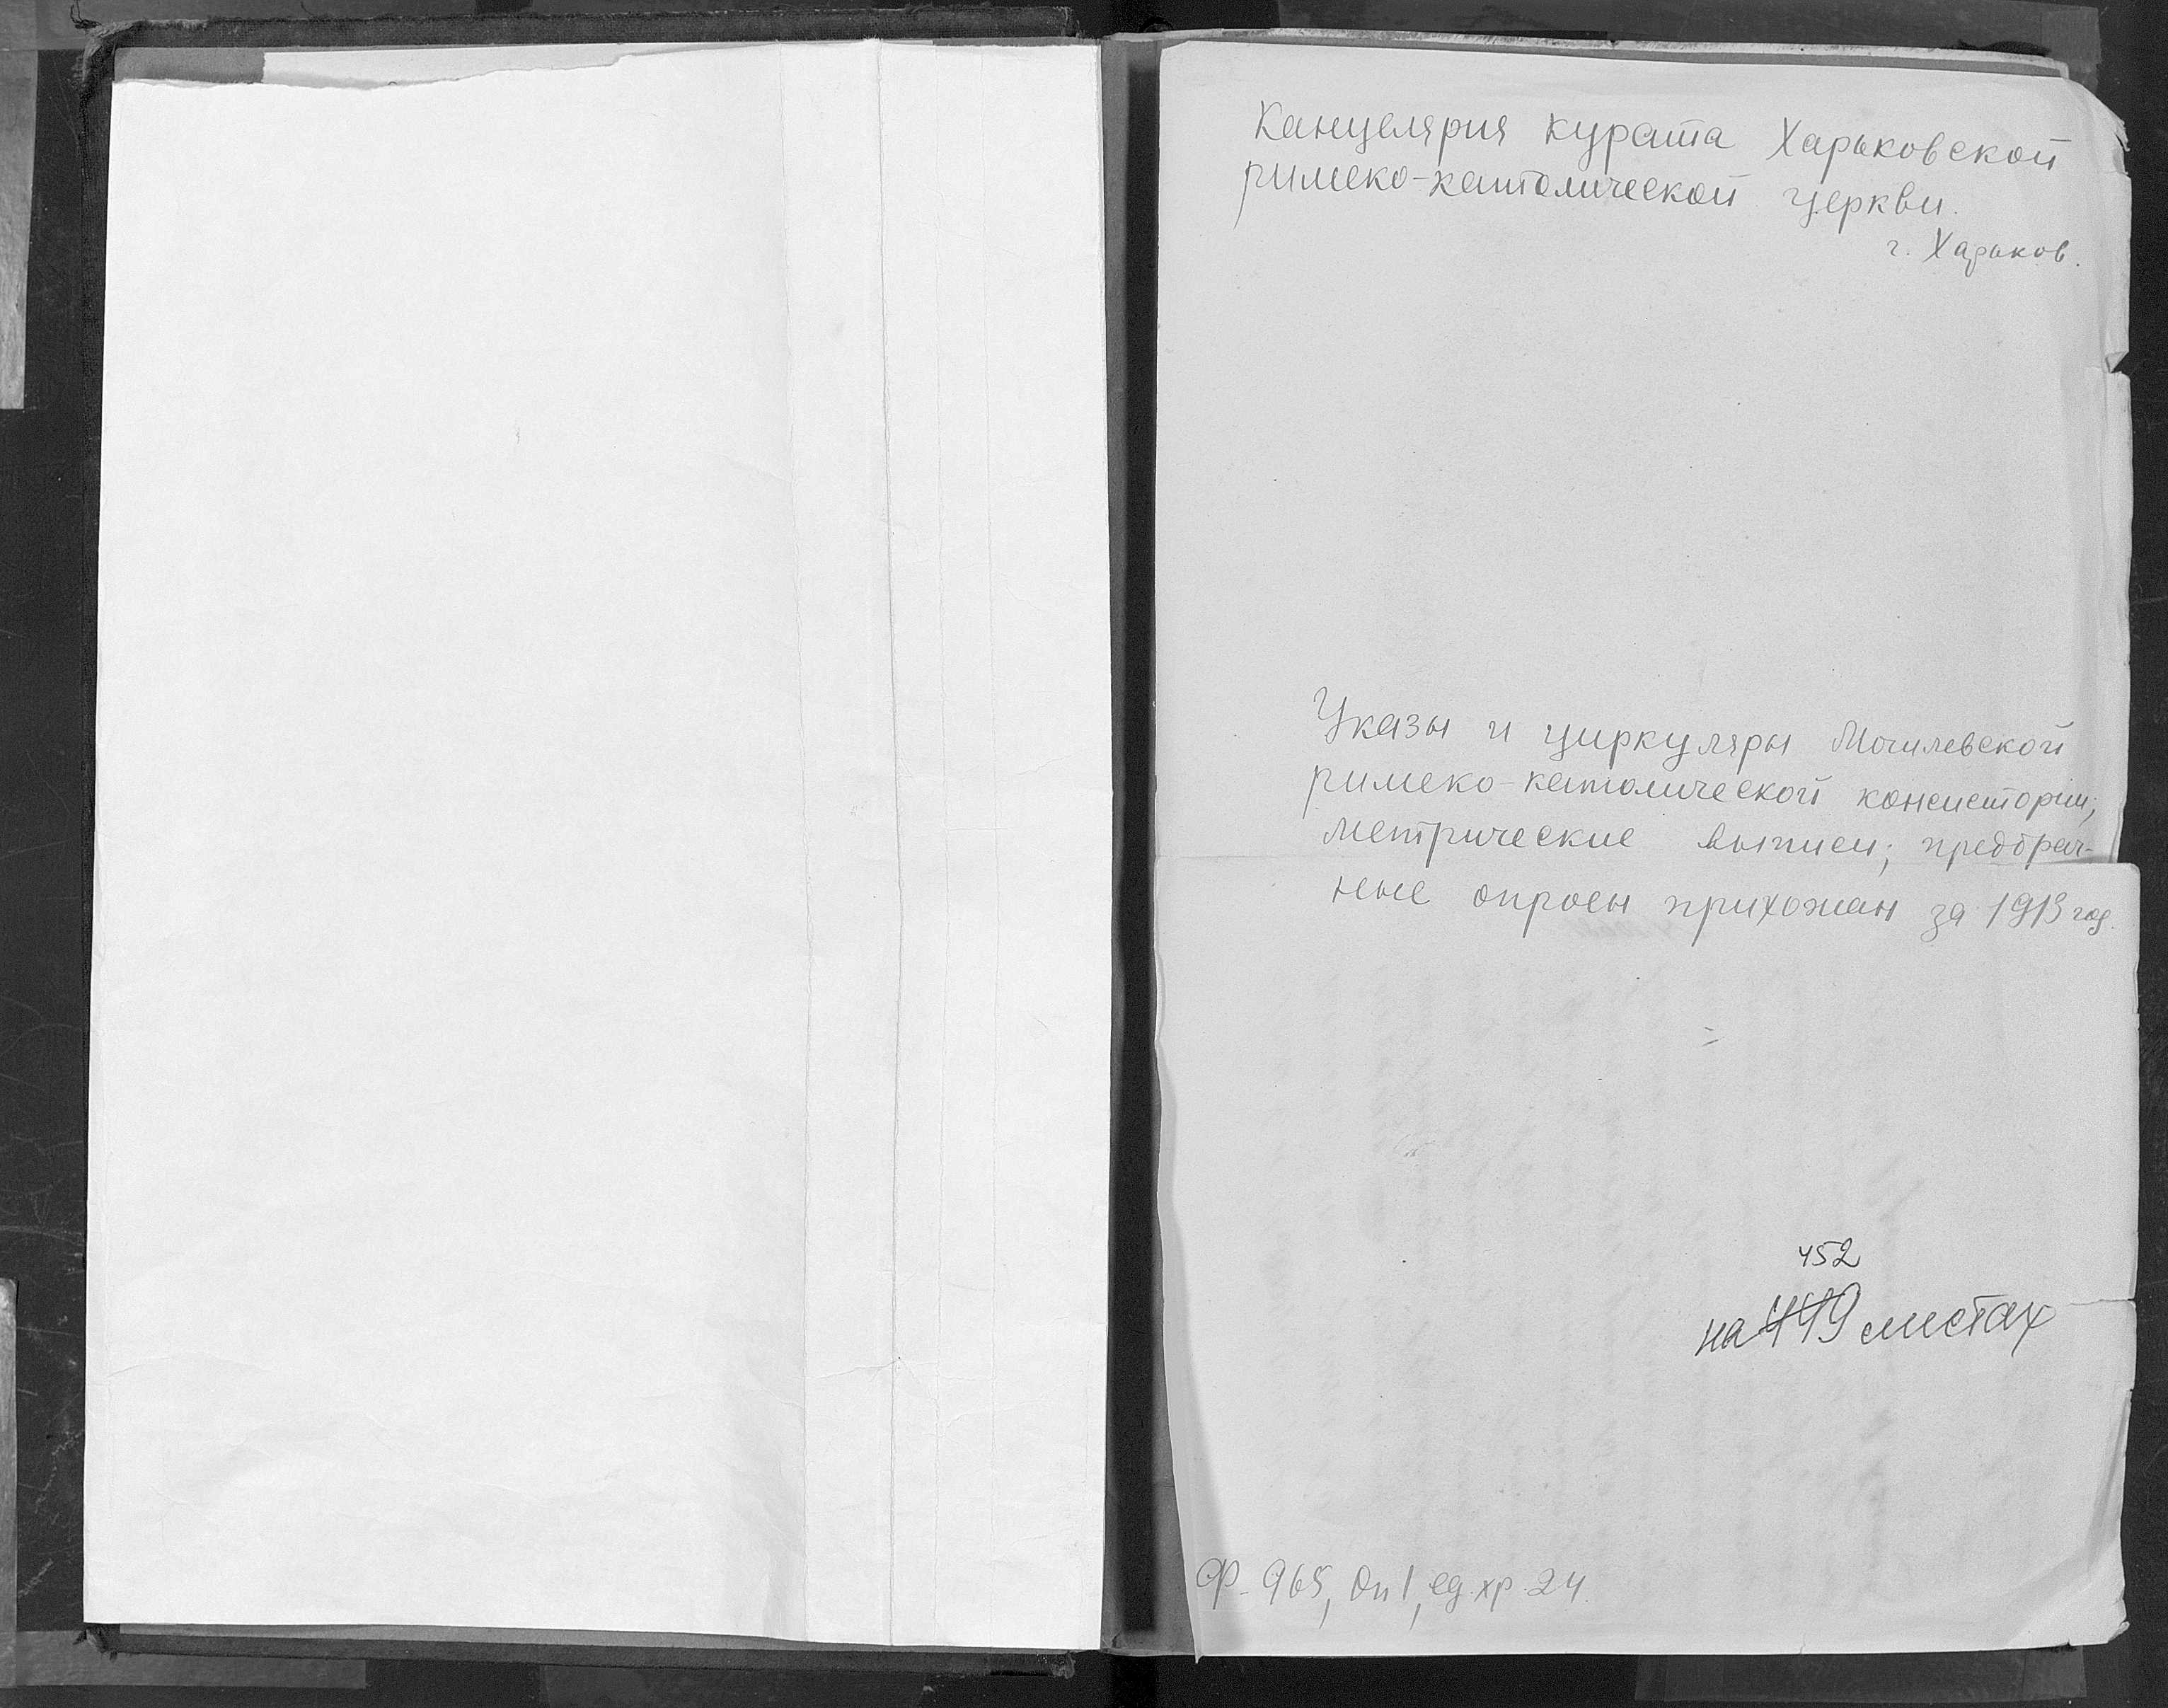 Канцелярия курата Харьковской
римско-католической церкви.
г. Харьков.
Указы и циркуляры Могилевской
римско-католической консистории;
метрические выписи; предбрач-
ные опросы прихожан за 1913 год.
452
на 449 листах
Ф-965, Оп 1, ед. хр 24.